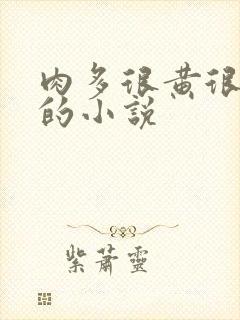 肉多很黄很
的小説
紫蕭靈